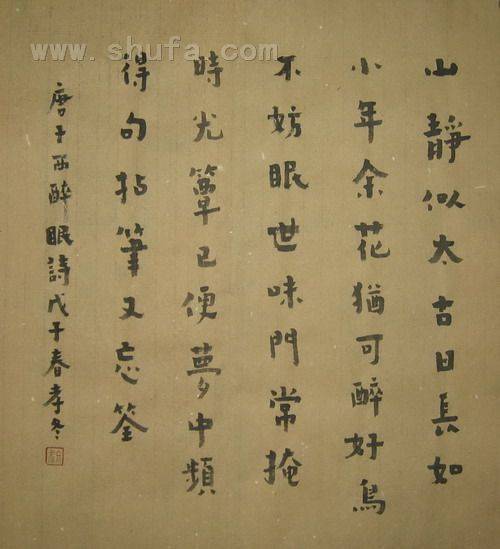 www.shufa.com
山靜似太古日長如
小年余花猶可醉好鳥
不妨眠世味門常掩
時光簟已便夢中頻
得句拈筆又忘筌
唐子西醉眠詩戊子春孝冬